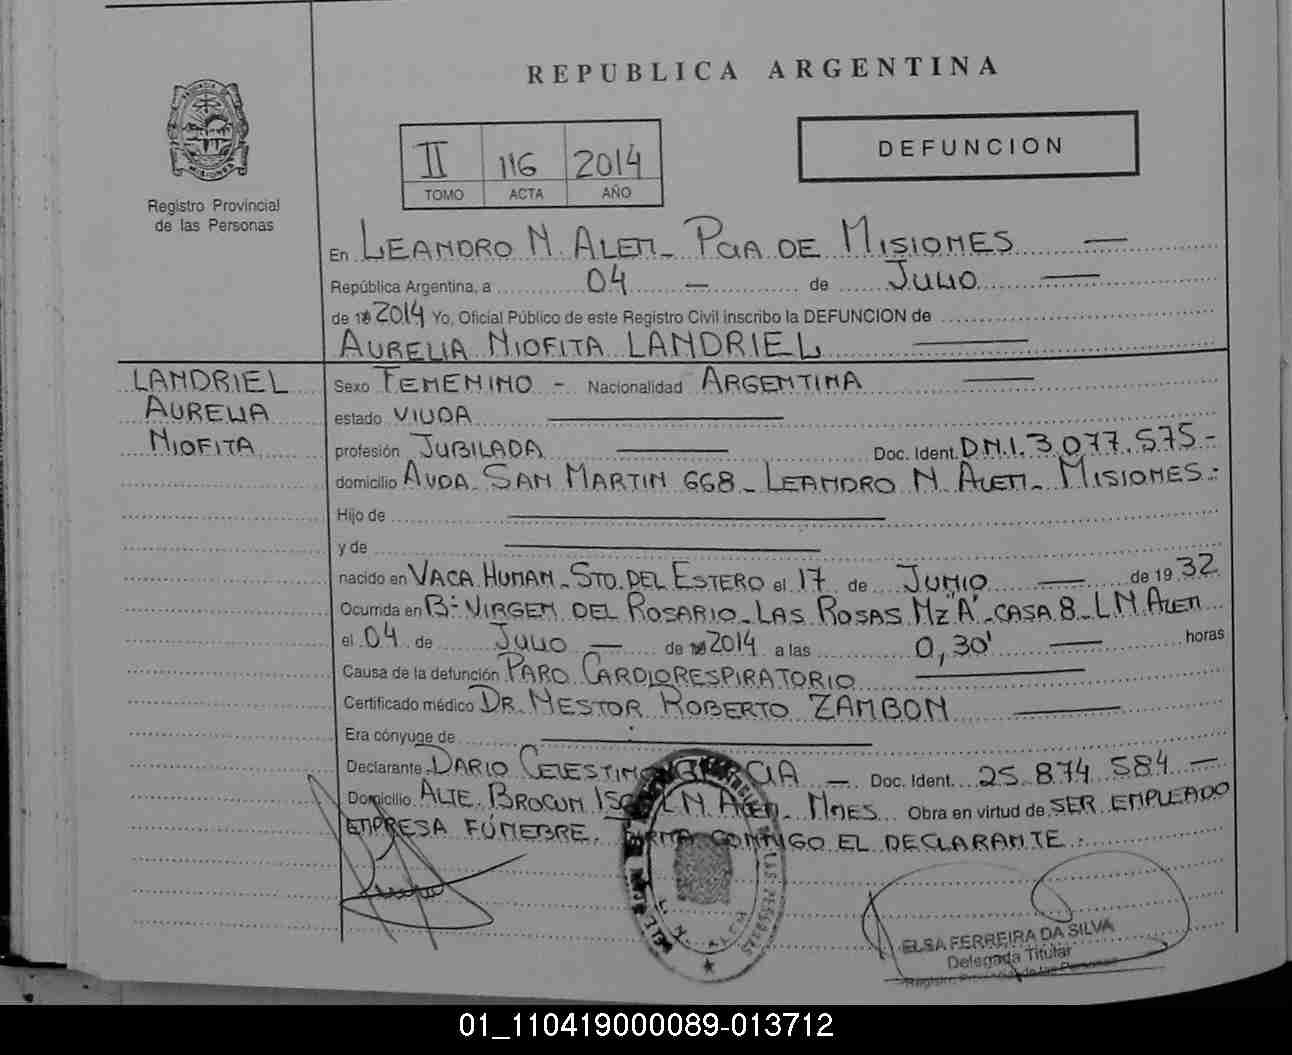 REPUBLICA ARGENTINA
DEFUNCION
II 116 2014
TOMO ACTA AÑO
Registro Provincial
de las Personas
En LEANDRO N. ALEM - PCIA DE MISIONES
República Argentina, a 04 - de JULIO
de 2014 Yo, Oficial Público de este Registro Civil inscribo la DEFUNCION de
AURELIA NIOFITA LANDRIEL
LANDRIEL
AURELIA
NIOFITA
Sexo FEMENINO - Nacionalidad ARGENTINA
estado VIUDA
profesión JUBILADA Doc. Ident. D.N.I. 3.077.575-
domicilio AVDA. SAN MARTIN 668 - LEANDRO N. ALEM - MISIONES.-
Hijo de
y de
nacido en VACA HUMAN - STO. DEL ESTERO el 17 de JUNIO de 1932
Ocurrida en Bº VIRGEN DEL ROSARIO - LAS ROSAS MZ "A" - CASA 8 - L.N. ALEM
el 04 de JULIO de 2014 a las 0,30' horas
Causa de la defunción PARO CARDIORESPIRATORIO
Certificado médico DR. NESTOR ROBERTO ZAMBON
Era cónyuge de
Declarante DARIO CELESTINO GARCIA - Doc. Ident. 25.874.584 -
Domicilio ALTE. BROWN L.N. ALEM - MNES Obra en virtud de SER EMPLEADO
EMPRESA FÚNEBRE. FIRMA CONMIGO EL DECLARANTE.-
ELSA FERREIRA DA SILVA
Delegada Titular
Registro Provincial de las Personas
01_110419000089-013712